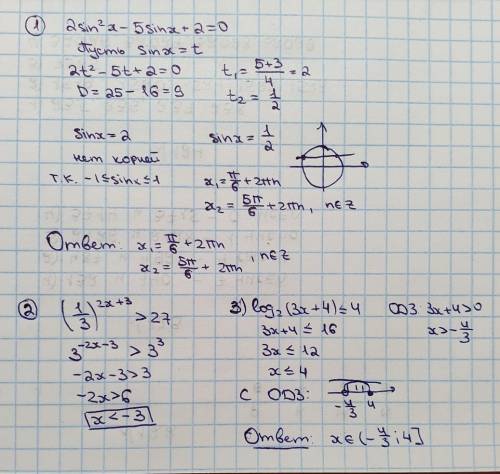 ① 2sin²x - 5sinx + 2 = 0
Пусть sinx = t
2t² - 5t + 2 = 0
D = 25 - 16 = 9
t₁ = (5+3)/4 = 2
t₂ = 1/2
sinx = 2
нет корней
т.к. -1 ≤ sinx ≤ 1
sinx = 1/2
x₁ = π/6 + 2πn
x₂ = 5π/6 + 2πn, n∈Z
Ответ: x₁ = π/6 + 2πn
x₂ = 5π/6 + 2πn , n∈Z
② (1/3)^(2x+3) > 27
3^(-2x-3) > 3³
-2x-3 > 3
-2x > 6
x < -3
3) log₂(3x+4) ≤ 4
3x+4 ≤ 16
3x ≤ 12
x ≤ 4
ОДЗ 3x+4 > 0
x > -4/3
С ОДЗ:
-4/3 4
Ответ: x∈(-4/3; 4]